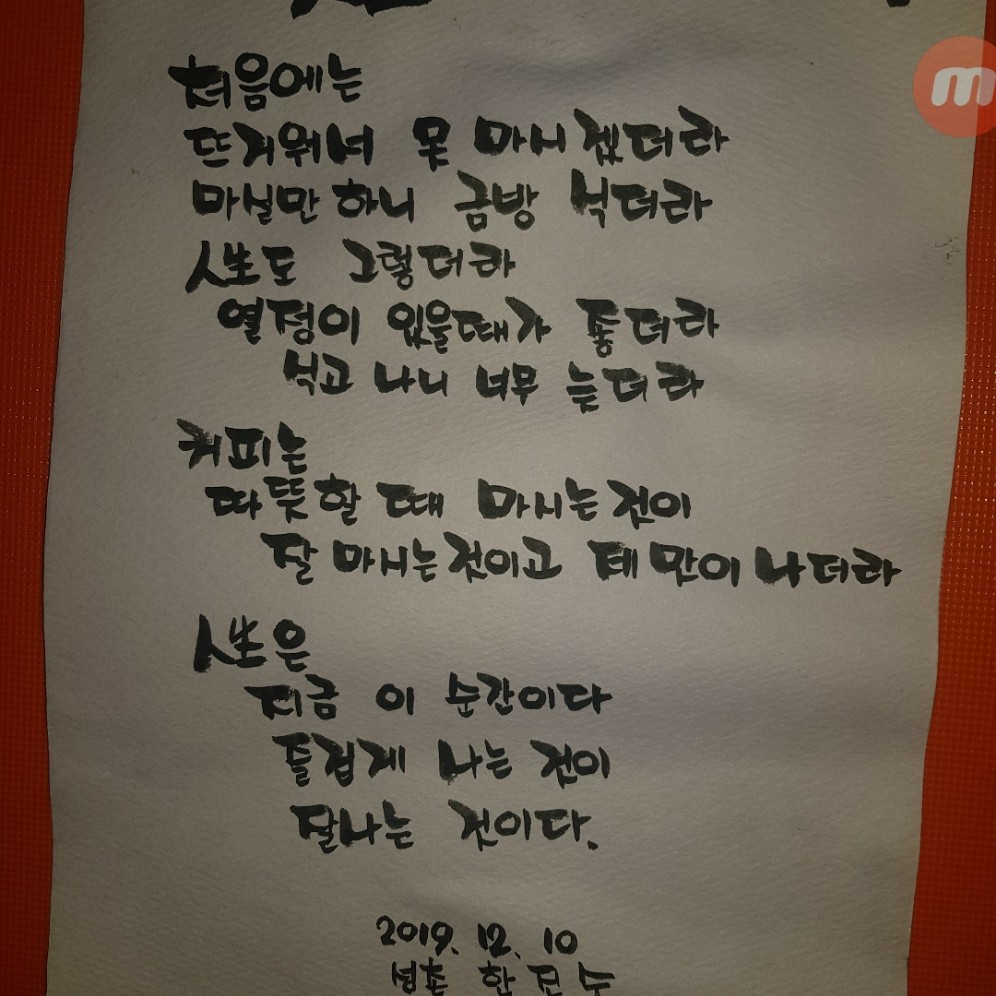 처음에는
뜨거워서 못 마시겠더라
마실만 하니 금방 식더라
人生도 그렇더라
열정이 있을때가 좋더라
식고 나니 너무 늦더라
커피는
따뜻할 때 마시는것이
잘 마시는것이고 제 맛이 나더라
人生은
지금 이 순간이다
즐겁게 사는 것이
잘사는 것이다.
2019. 12. 10
m